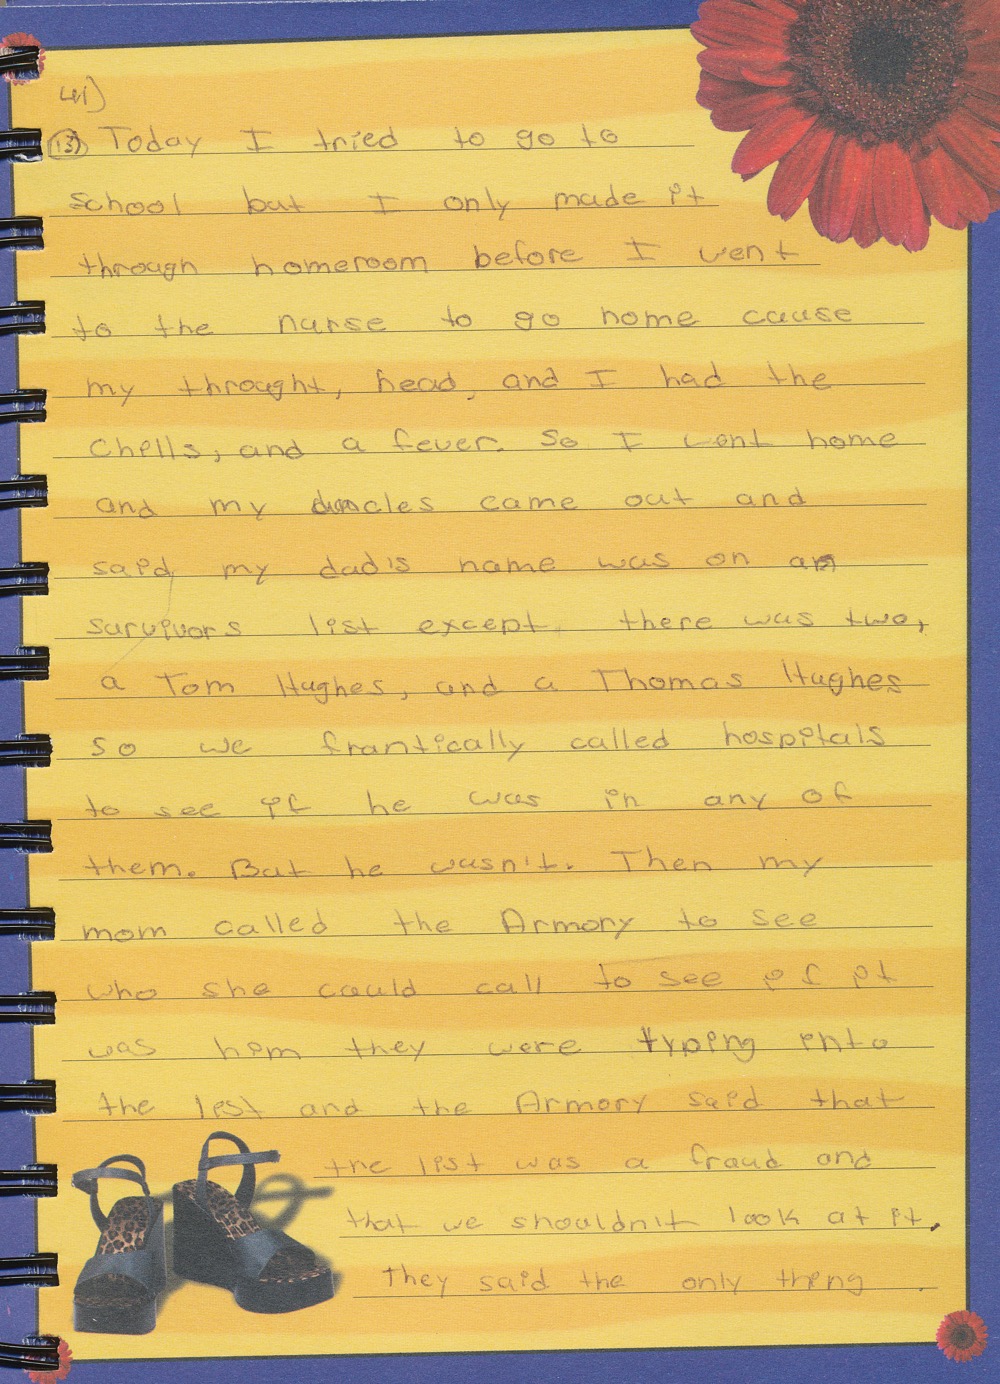 41)
13) Today I tried to go to
school but I only made it
through homeroom before I went
to the nurse to go home cause
my throught, head, and I had the
chills, and a fever. So I went home
and my uncles came out and
said my dad's name was on an
survivors list except there was two,
a Tom Hughes, and a Thomas Hughes
so we frantically called hospitals
to see if he was in any of
them. But he wasn't. Then my
mom called the Armory to see
who she could call to see if it
was him they were typing into
the list and the Armory said that
the list was a fraud and
that we shouldn't look at it.
They said the only thing